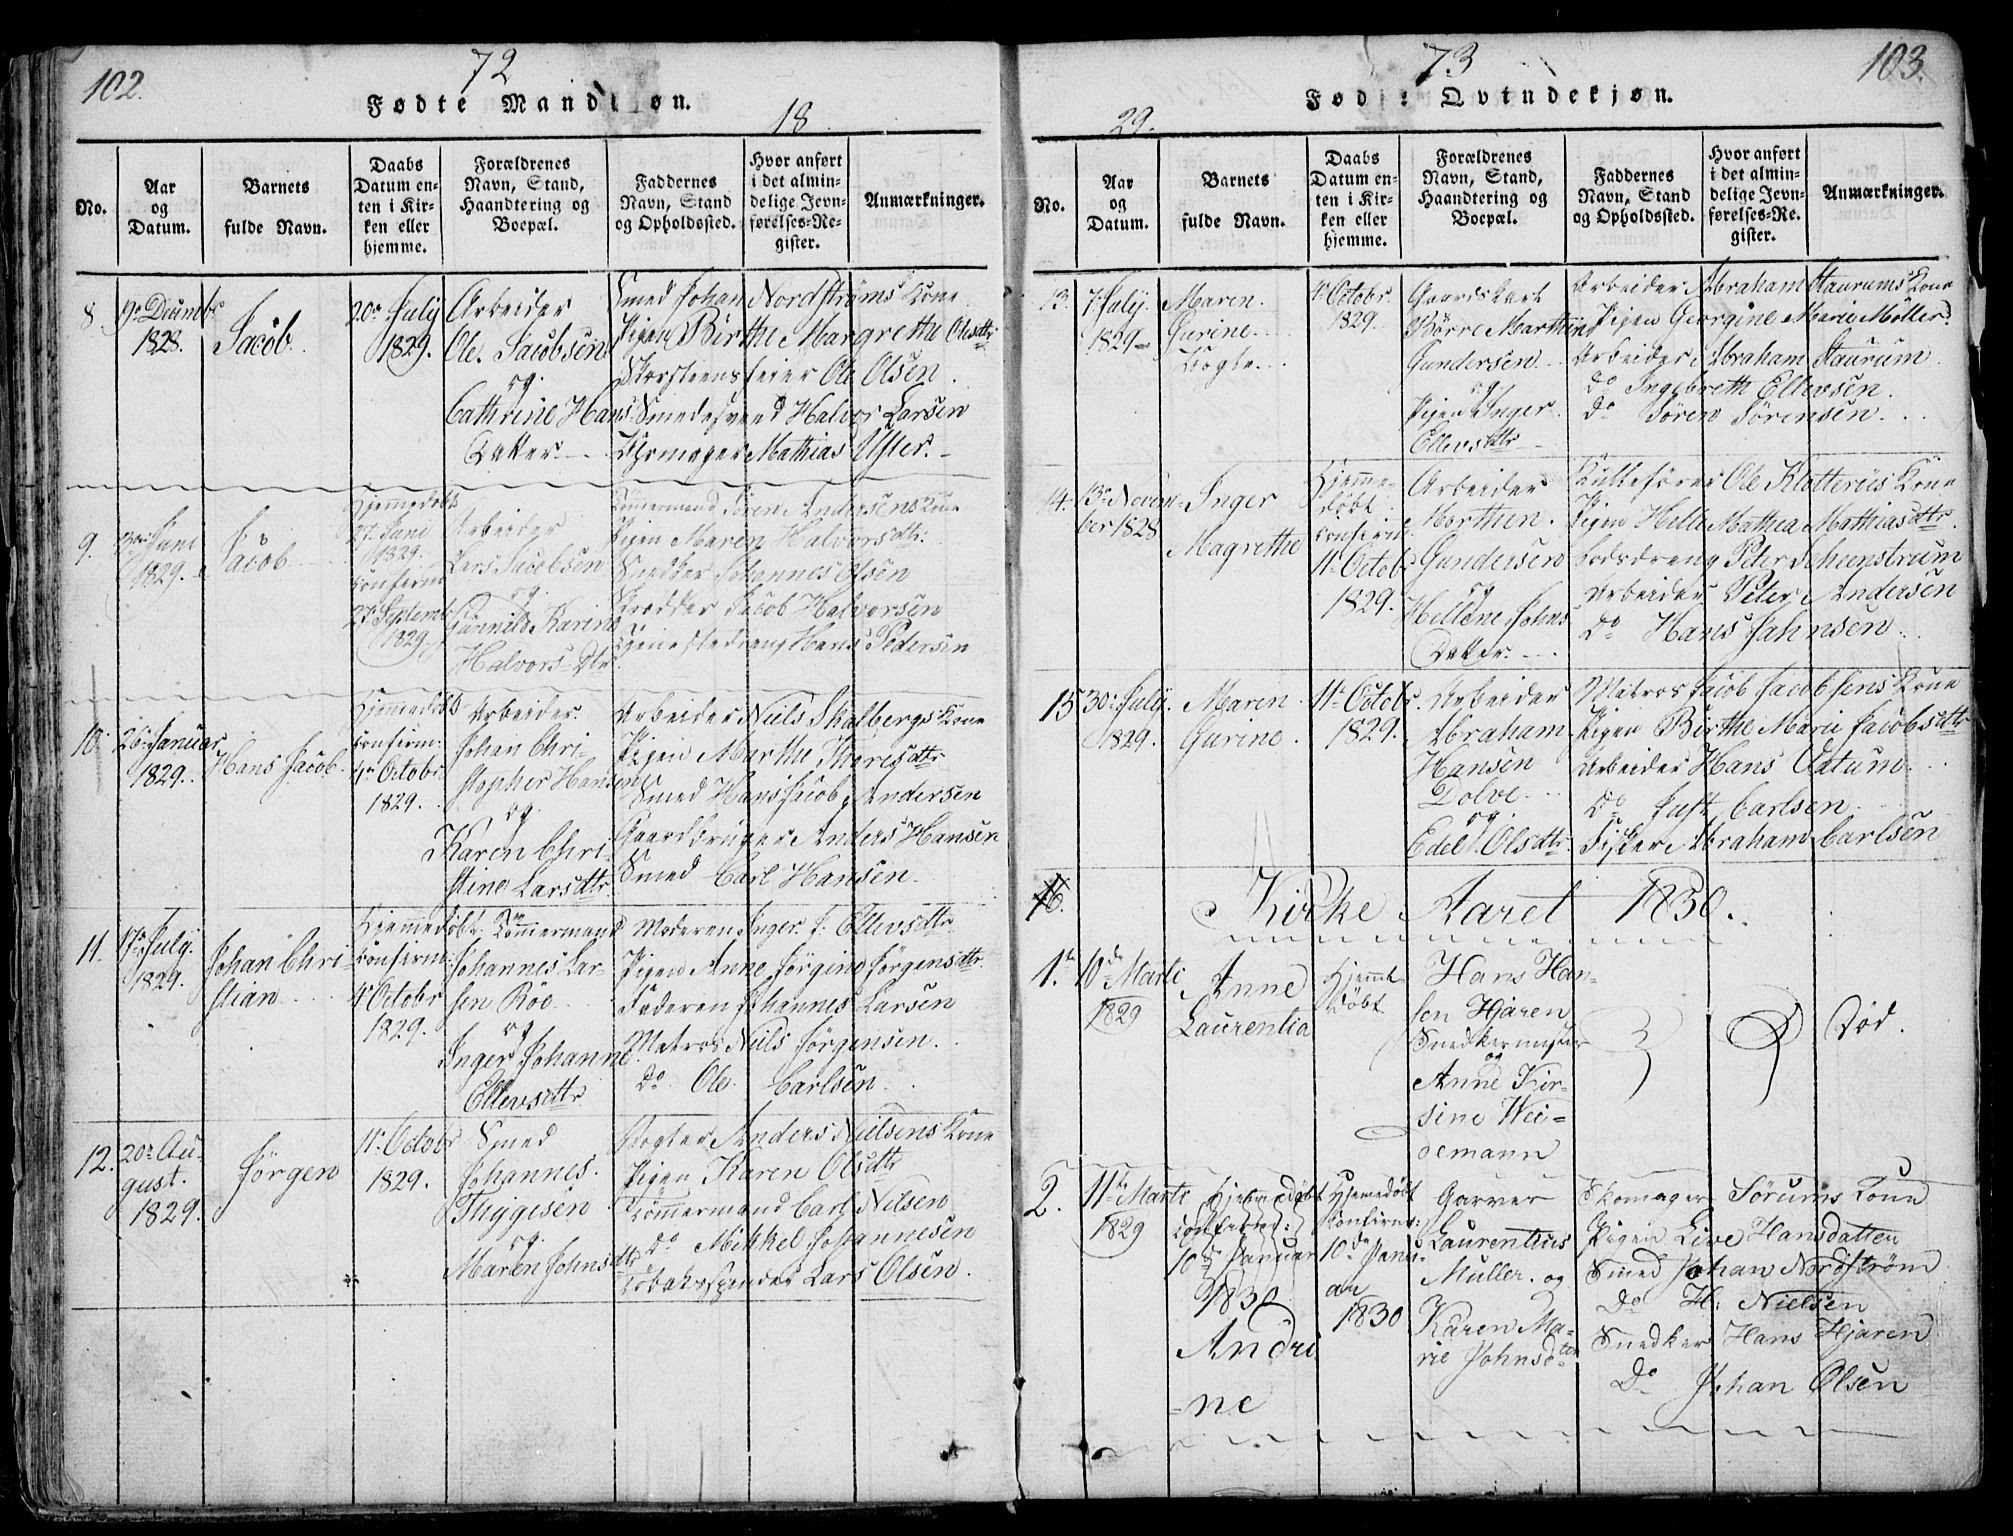 102.
72
Fødte Mandkjøn.
18
No.
Aar
og
Datum.
Barnets
fulde Navn.
Daabs
Datum en-
ten i Kir-
ken eller
hjemme.
Forældrenes
Navn, Stand,
Haandtering og
Boepæl.
Faddernes
Navn, Stand
og Opholdssted.
Hvor anført
i det almin-
delige Jevn-
førelses-Re-
gister.
Anmærkninger.
8.
1828.
Jacob.
20de July
1829.
Arbeider
Ole Jacobsen
og
Cathrine Hans
Datter.
Smed Johan Nordstrøms Kone
Pigen Birthe Margrethe Olsdtr
Skorsteensfeier Ole Olsen.
Smedesvend Halvor Larsen
Mathias
9.
Juni
1829.
Jacob
Hjemedøbt
27 Juni
1829.
Confirm
27 Septembr
1829.
Arbeider
Lars Jacobsen
og
Gunnild Karine
Halvors-Dtr
Tømmermand Søren Andersens Kone
Pigen Maren Halvorsdtr:
Snedker Johannes Olsen
Skrædder Jacob Halvorsen
Tjenestedreng Hans Pedersen
10.
26 Januar
1829.
Hans Jacob.
Hjemmedøbt
Confirm:
4de Octobr
1829.
Arbeider.
Johan Chri-
stopher Hansen
og
Karen Chri-
stine Larsdtr
Arbeider Niels Skalbergs Kone
Pigen Marthe
Smed Hans Jacob Andersen
Gaardbruger Anders Hansen
Smed Carl Hansen.
11.
17de July.
1829.
Johan Chri-
stian
Hjemmedøbt.
Confirm:
4 Octobr
1829.
Tømmermand
Johannes Lar-
sen Röe
og
Inger Johanne
Ellevsdtr
Moderen Inger J. Ellevsdtr
Pigen Anne Jørgine Jørgensdtr.
Faderen Johannes Larsen
Matros Niels Jørgensen.
Do Ole Carlsen.
12.
20de Au-
gust.
1829.
Jørgen
11 Octobr
1829.
Smed
Johannes
Thygesen
og
Maren Johnsdtr
Anders Nielsens Kone
Pigen Karen Olsdtr
Tømmermand Carl Nilsen
Do Mikkel Johannesen
Tobaksspinder Lars Olsen.
73
103.
Fødte Qvindekjøn.
29.
No.
Aar
og
Datum.
Barnets
fulde Navn.
Daabs
Datum en-
ten i Kir-
ken eller
hjemme.
Forældrenes
Navn, Stand,
Haandtering og
Boepæl.
Faddernes
Navn, Stand
og Opholdssted.
Hvor anført
i det almin-
delige Jevn-
førelses-Re-
gister.
Anmærkninger.
13.
7 July.
1829
Maren
Gurine
4 Octobr.
1829.
Børre Marthin
Gundersen
og
Pigen Inger
Ellevsdtr
Arbeider Abraham Staurums Kone
Pigen Georgine Marie Möller.
Arbeider Abraham Staurum
Do Ingebreth Ellevsen.
Do Sören Sörensen.
14.
13de Novem-
ber 1828
Inger
Magrethe
Hjemme-
døbt.
Confirm:
11 Octobr
1829.
Arbeider
Morthen
Gundersen
og
Hellene Johns
Datter.
Ole Kones
Pigen Helle Mathea Mathiasdtr.
Lodsdreng Peter
Arbeider Peter Andersen
Do Hans Jahnsen
15
30 July.
1829.
Maren
Gurine.
11 Octobr.
1829.
Arbeider
Abraham
Hansen
Dolve
og
Edel Olsdtr.
Matros Jacob Jacobsens Kone
Pigen Birthe Marie Jacobsdtr
Arbeider Hans
Do Just Carlsen
Fisker Abraham Carlsen
16.
Kirke Aaret 1830.
1.
10de Marti
1829
Anne
Laurentia
Hjemme
Døbt
Hans Han-
sen Hjaren
Snedkermester
og
Anne Kir-
sine Wei-
demann
Død.
2.
11te Marti
1829
Hjemedøbt
Confirm:
10de Januar
1830
Andri
-ne
Hjemedøbt
Confirm:
10de Janu-
ar
1830
Garver
Laurentius
Müller. og
Karen Ma-
rie Johnsd
Skomager Sörums Kone
Pigen Live Hansdatter
Smed Johan Nordström
Do H: Nielsen
Snedker Hans Hjaren
Do Johan Olsen